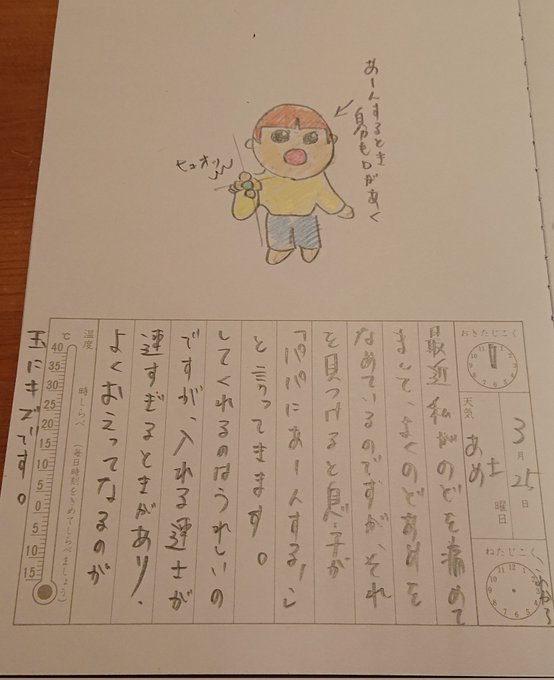 あーんするとき
自分も口があく
ヒュオッ
おきたじこく
3月25日
土曜日
天気
あめ
ねたじこく
これから
最近私がのどを痛めて
まして、よくのどあめを
なめているのですが、それ
を見つけると息子が
「パパにあーんする!」
と言ってきます。
してくれるのはうれしいの
ですが、入れる速さが
速すぎるときがあり、
よくおえってなるのが
玉にキズです。
温度
時しらべ
(毎日時刻をきめてしらべましょう)
℃
40
35
30
25
20
15
10
5
0
5
10
15